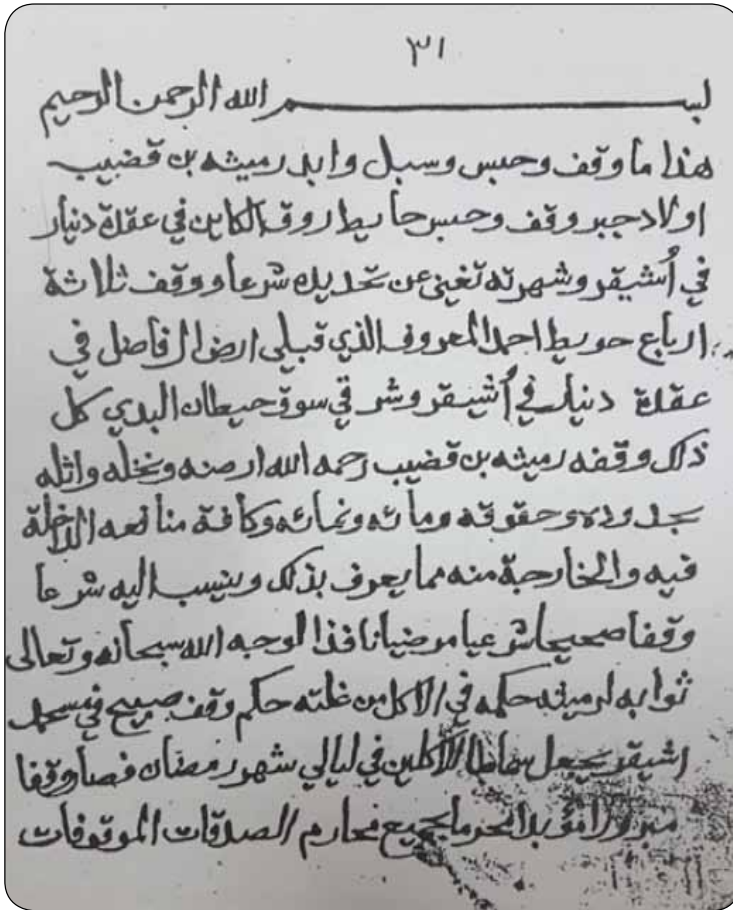 ٣١
بسم الله الرحمن الرحيم
هذا ما وقف وحبس وسبل وابد رميثه بن قضيب
اولاد جبر وقف وحبس حايط روق الكاين في عقلة دنيار
في أشيقر وشهرته تغني عن تحديده شرعا ووقف ثلاثة
ارباع حويط احمد المعروف الذي قبلي ارض ال فاضل في
عقلة دنيار في أشيقر وشرقي سوق حيطان البدي كل
ذلك وقفه رميثه بن قضيب رحمه الله ارضه ونخله واثله
بحدوده وحقوقه ومائه ونمائه وكافة منافعه الداخلة
فيه والخارجة منه مما يعرف بذلك وينسب اليه شرعا
وقفا صحيحا شرعيا مرضيا نافذا لوجه الله سبحانه وتعالى
ثوابه لرميثه حكمه في الاكل من غلته حكم وقف صبيح في مسجد
اشيقر يجعل سماطا للآكلين في ليالي شهر رمضان فصار وقفا
مبرورا مؤبدا محرما بجميع محارم الصدقات الموقوفات